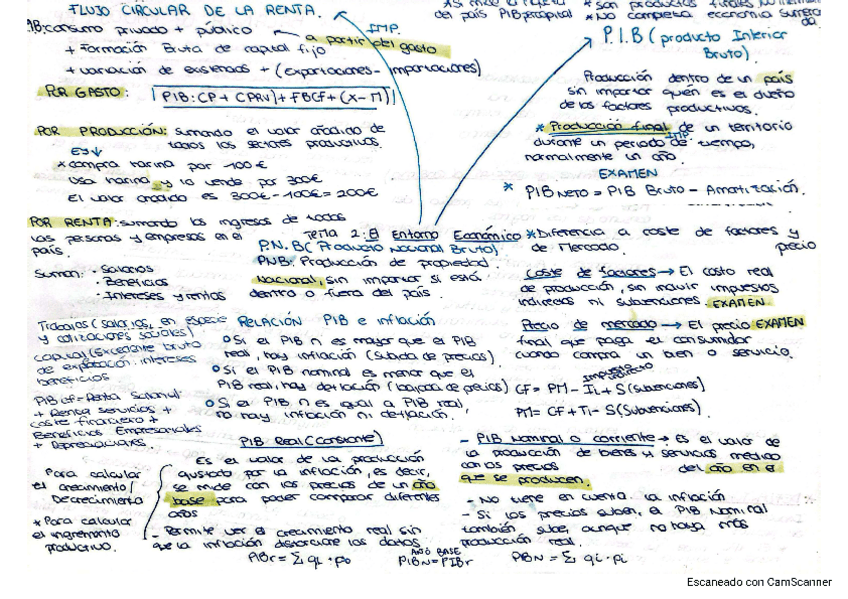 FLUJO CIRCULAR DE LA RENTA.
del país PIB percapital
* No completa economía sumergida
consumo privado + público
a partir del gasto
IMP.
+ Formación Bruta de capital fijo
+ variación de existencias + (exportaciones - importaciones)
POR GASTO: PIB: CP + CPRV) + FBCF + (X - M)
POR PRODUCCIÓN: sumando el valor añadido de
todos los sectores productivos.
Ej ↓
* compra harina por 100€
usa harina y lo vende por 300€
El valor añadido es 300€ - 100€ = 200€
POR RENTA: sumando los ingresos de todos
las personas y empresas en el
país.
Suman: · Salarios
· Beneficios
· Intereses y rentas
P.I.B (producto Interior
Bruto)
Producción dentro de un país
sin importar quién es el dueño
de los factores productivos.
* Producción final de un territorio
IMP.
durante un periodo de tiempo,
normalmente un año.
EXAMEN
* PIB NETO = PIB Bruto - Amortización.
Tema 2: El Entorno Económico
P.N.B (Producto Nacional Bruto)
PNB: Producción de propiedad
Nacional, sin importar si está
dentro o fuera del país.
* Diferencia a coste de factores y precio
de Mercado.
Coste de factores → El costo real
de producción, sin incluir impuestos
indirectos ni subvenciones. EXAMEN
Precio de mercado → El precio EXAMEN
final que paga el consumidor
cuando compra un bien o servicio.
impuesto indirecto
CF = PM - Ii + S (subvenciones)
PM = CF + Ti - S (Subvenciones).
Trabajos (salarios, en especie
y cotizaciones sociales)
capital (Excedente bruto
de explotación. intereses
beneficios
PIB CF = Renta Salarial
+ Renta servicios +
coste financiero +
Beneficios Empresariales
+ Depreciaciones.
RELACIÓN PIB e inflación
o Si el PIB n es mayor que el PIB
real, hay inflación (subida de precios).
o Si el PIB nominal es menor que el
PIB real, hay deflación (bajada de precios)
o Si el PIB n es igual a PIB real,
no hay inflación ni deflación.
PIB Real (constante)
Es el valor de la producción
ajustado por la inflación, es decir,
se mide con los precios de un año
base para poder comparar diferentes
años
- Permite ver el crecimiento real sin
que la inflación distorsione los datos
PIBr = Σ qi · po
AÑO BASE
PIBN = PIBr
Para calcular
el crecimiento/
Decrecimiento
* Para calcular
el incremento
productivo.
- PIB Nominal o corriente → Es el valor de
la producción de bienes y servicios medido
con los precios del año en el
que se producen.
- No tiene en cuenta la inflación
- Si los precios suben, el PIB Nominal
también sube, aunque no haya más
producción real.
PIBN = Σ qi · pi
Escaneado con CamScanner